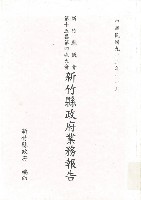 新竹縣議會
第十五屆第四次大會
新竹縣政府業務報告
新竹縣政府 編印